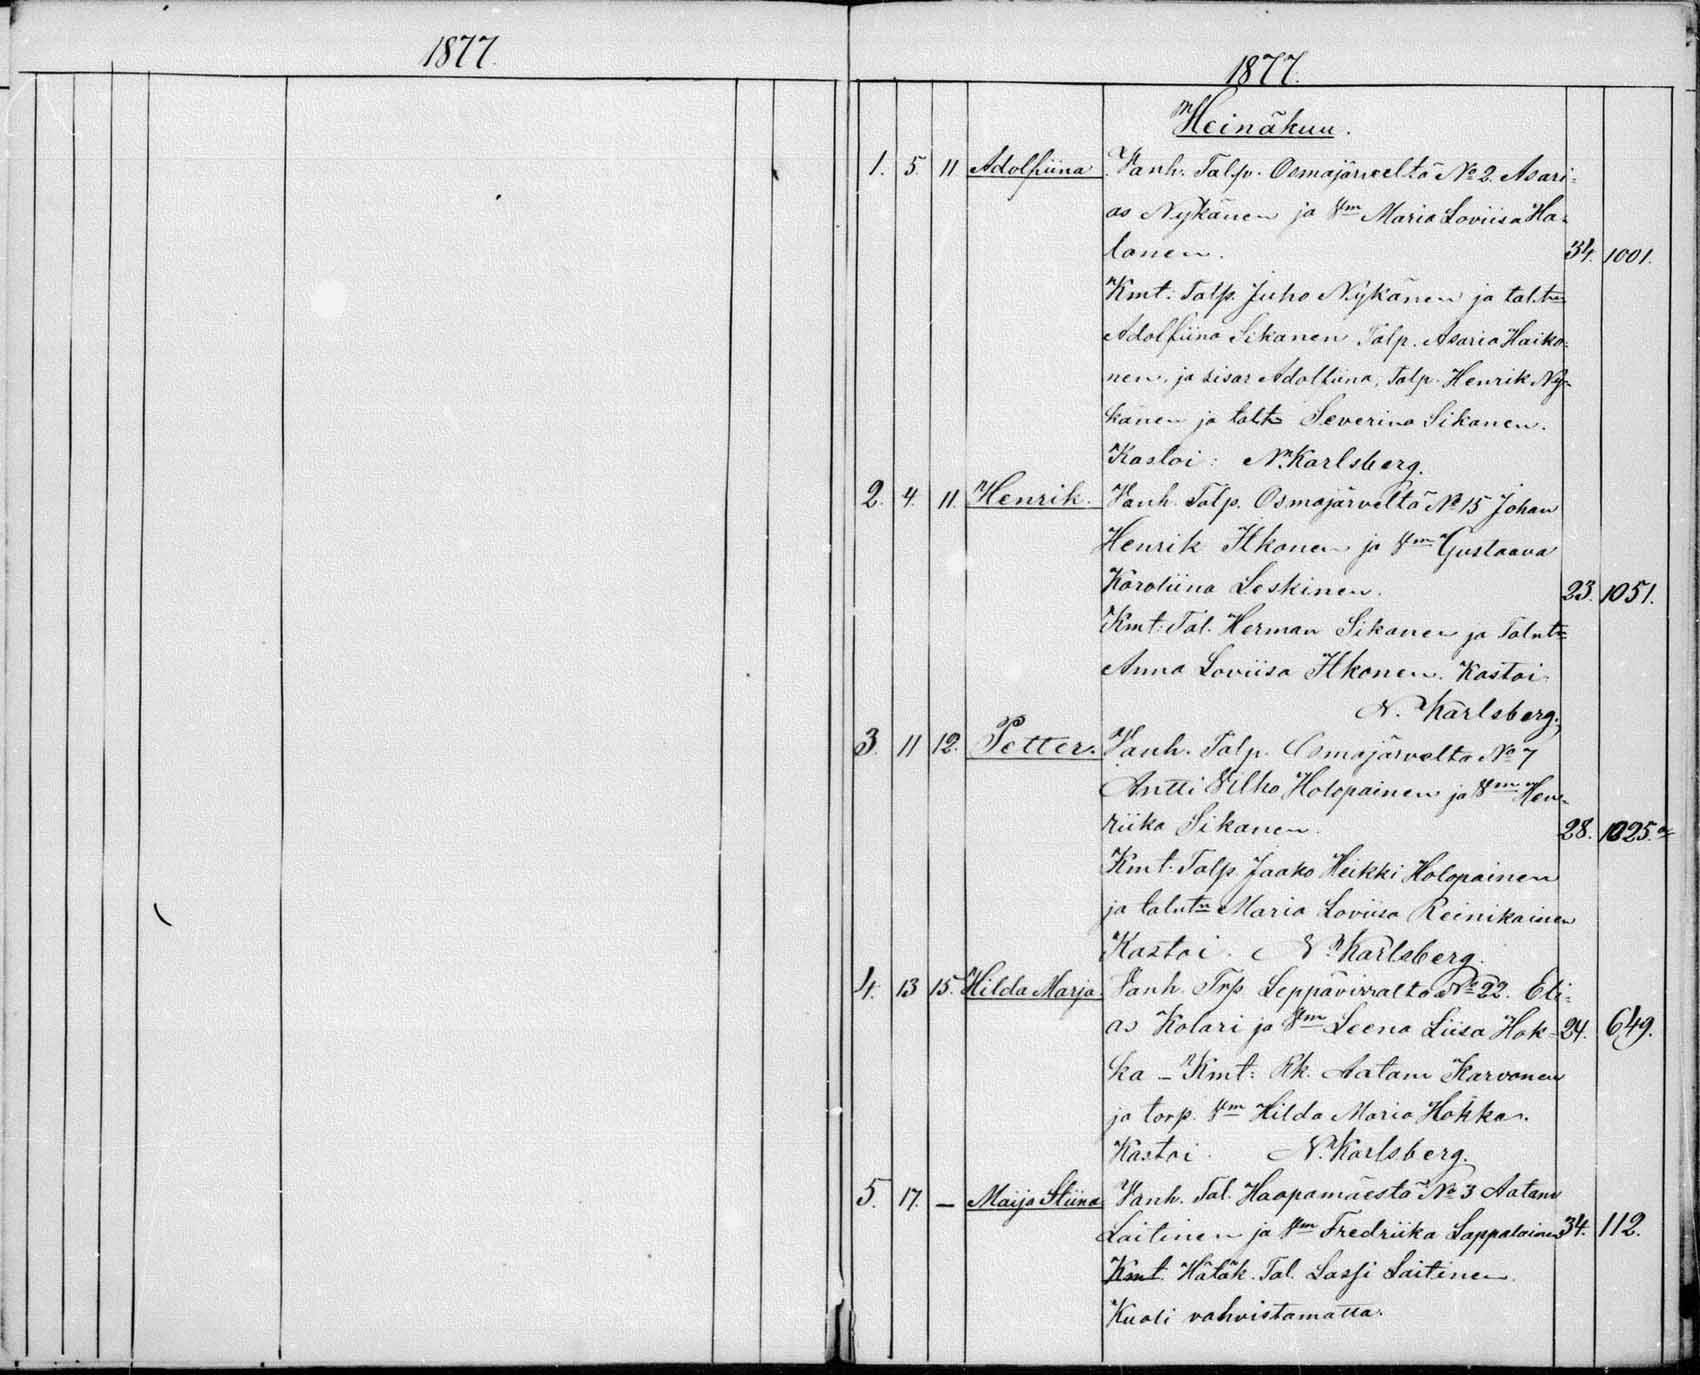 1877.
1877.
Heinäkuu.
1. 5. 11 Adolfiina Vanh. Talp. Osmajärveltä No 2. Asari-
as Nykänen ja Vm Maria Loviisa Ha-
lonen. 34. 1001.
Kmt: Talp. Juho Nykänen ja talt
Adolfiina Sikanen, Talp. Asaria Haiko-
nen, ja sisar Adolfiina, Talp. Henrik Ny-
känen ja talt Severina Sikanen.
Kastoi: N. Karlsberg.
2. 4. 11. Henrik. Vanh. Talp. Osmajärveltä No 15 Johan
Henrik Ikonen ja Vm Gustaava
Karoliina Leskinen. 23. 1051.
Kmt: Tal. Herman Sikanen ja Talut
Anna Loviisa Ikonen. Kastoi
N. Karlsberg.
3. 11 12. Petter. Vanh. Talp. Osmajärvelta No 7
Antti Vilho Holopainen ja Vm Hen-
riika Sikanen. 28. 1025.
Kmt: Talp. Jaako Heikki Holopainen
ja talut Maria Loviisa Reinikainen
Kastoi. N. Karlsberg.
4. 13 15. Hilda Marja. Vanh. Trp Leppävirralta No 22. Eli-
as Kolari ja Vm Leena Liisa Hok- 24. 649.
ka - Kmt: Rk. Aatam Karvonen
ja torp. Vm Hilda Maria Hokka.
Kastoi. N. Karlsberg.
5. 17. - Maija Stiina Vanh. Tal. Haapamäestä No 3 Aatam
Laitinen ja Vm Fredriika Lappalainen 34. 112.
Kmt Hätäk. Tal. Lassi Laitinen.
Kuoli vahvistamatta.